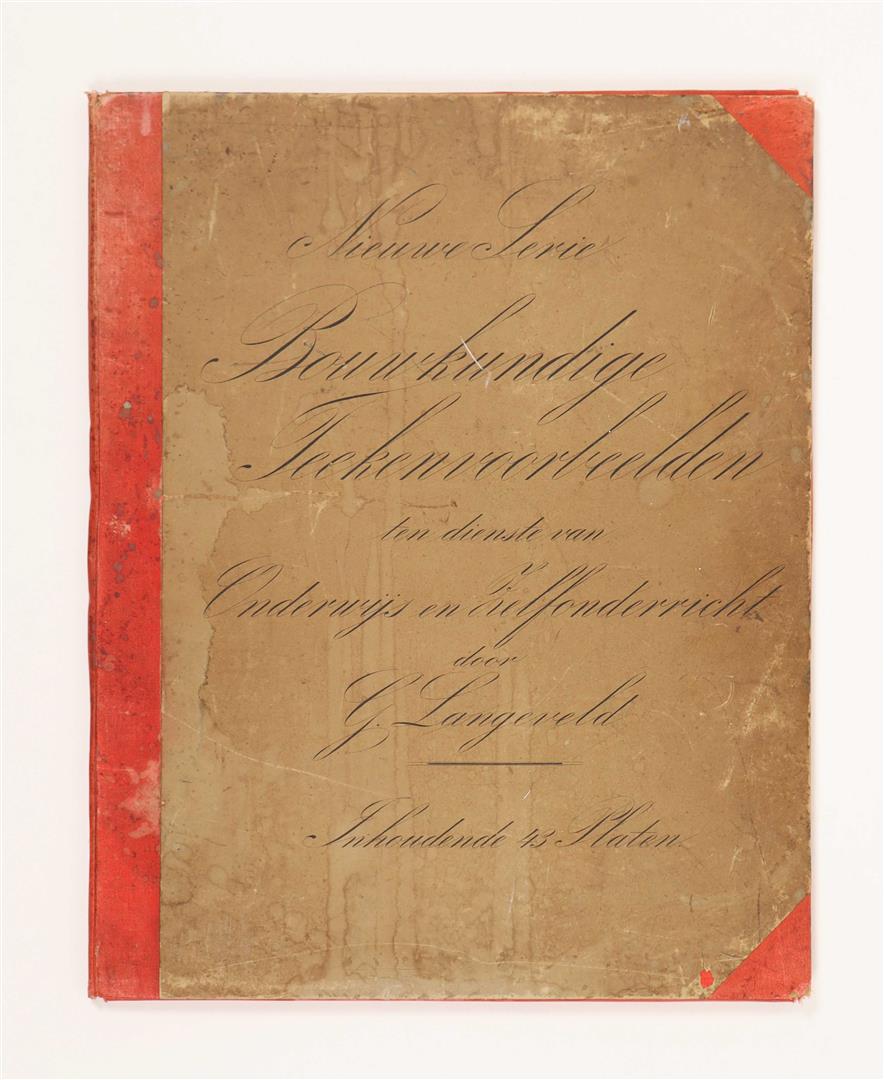 Nieuwe Serie
Bouwkundige
Teekenvoorbeelden
ten dienste van
Onderwijs en Zelfonderricht
door
G. Langeveld
Inhoudende 43 Platen.